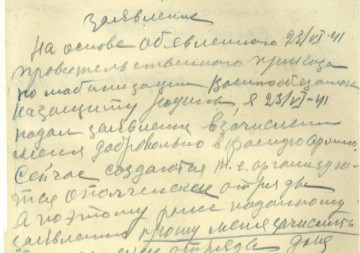 Заявление
На основе объявленного 23/VI-41
правительственного приказа
по мобилизации Военнообязанных
на защиту родины я 23/VI-41
подал заявление в зачислении
меня добровольно в Красную Армию.
Сейчас создаются т.е. организую-
тся ополченские отряды
А поэтому ранее поданному
заявлению прошу меня зачислить
отряда